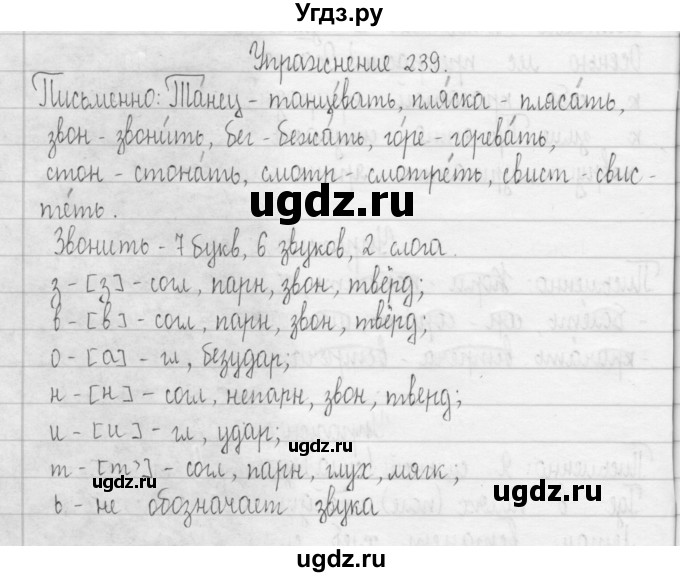 Угдз.ру
Упражнение 239.
Письменно: Та́нец - танцева́ть, пля́ска - пляса́ть,
звон - звони́ть, бег - бежа́ть, го́ре - горева́ть,
стон - стона́ть, смотр - смотре́ть, свист - свис-
те́ть.
ugdz.ru
Звонить - 7 букв, 6 звуков, 2 слога.
з - [з] - согл, парн, звон, твёрд;
в - [в] - согл, парн, звон, твёрд;
о - [а] - гл, безудар;
н - [н] - согл, непарн, звон, тверд;
и - [и] - гл, удар;
ugdz.ru
т - [т'] - согл, парн, глух, мягк,
ugdz.ru
ь - не обозначает звука
ugdz.ru